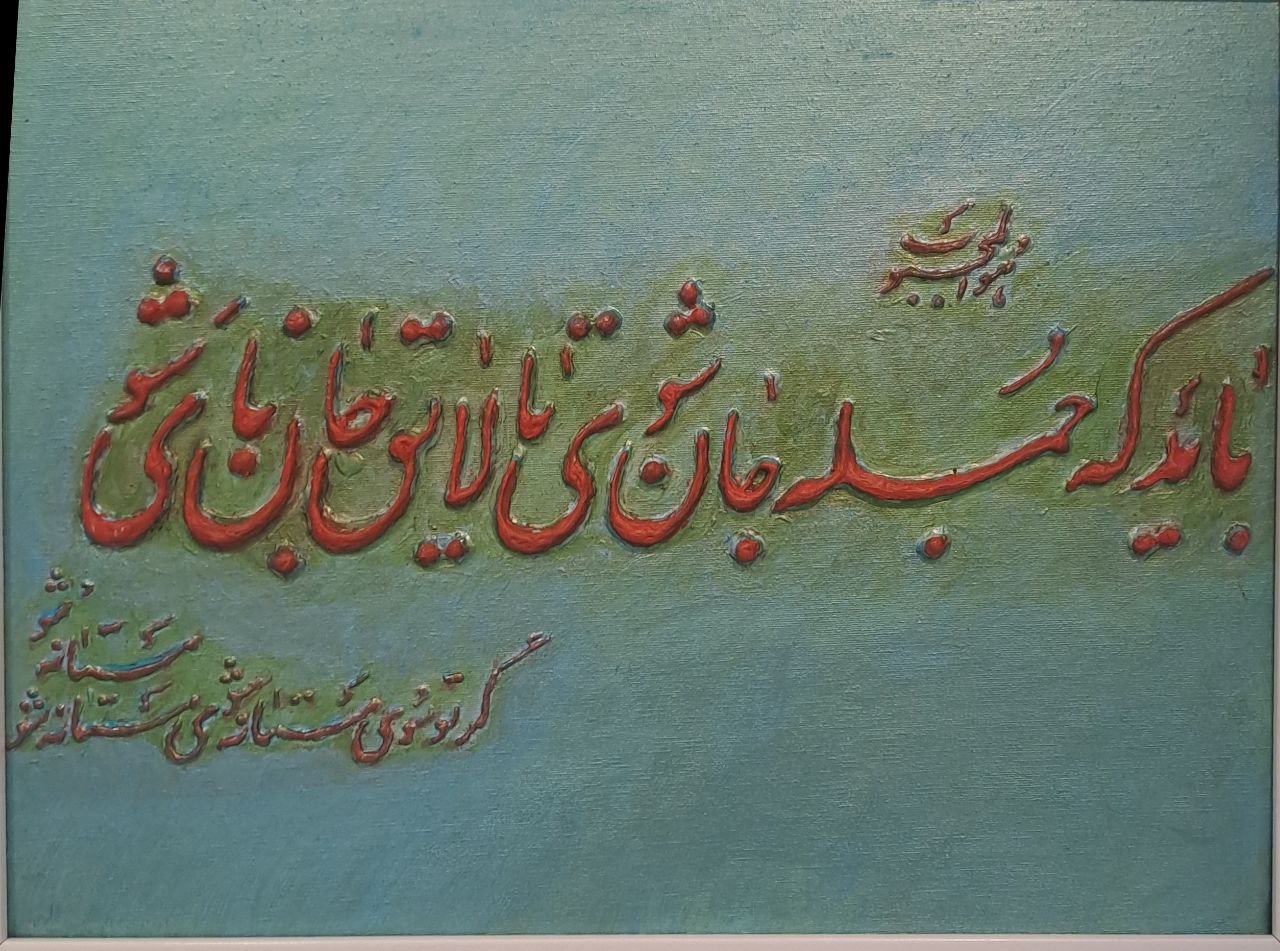 هوالمحبوب
باید که جمله جان شوی تا لایق جانان شوی
گر تو سوی مستانه شوی مستانه شو
مستانه شو